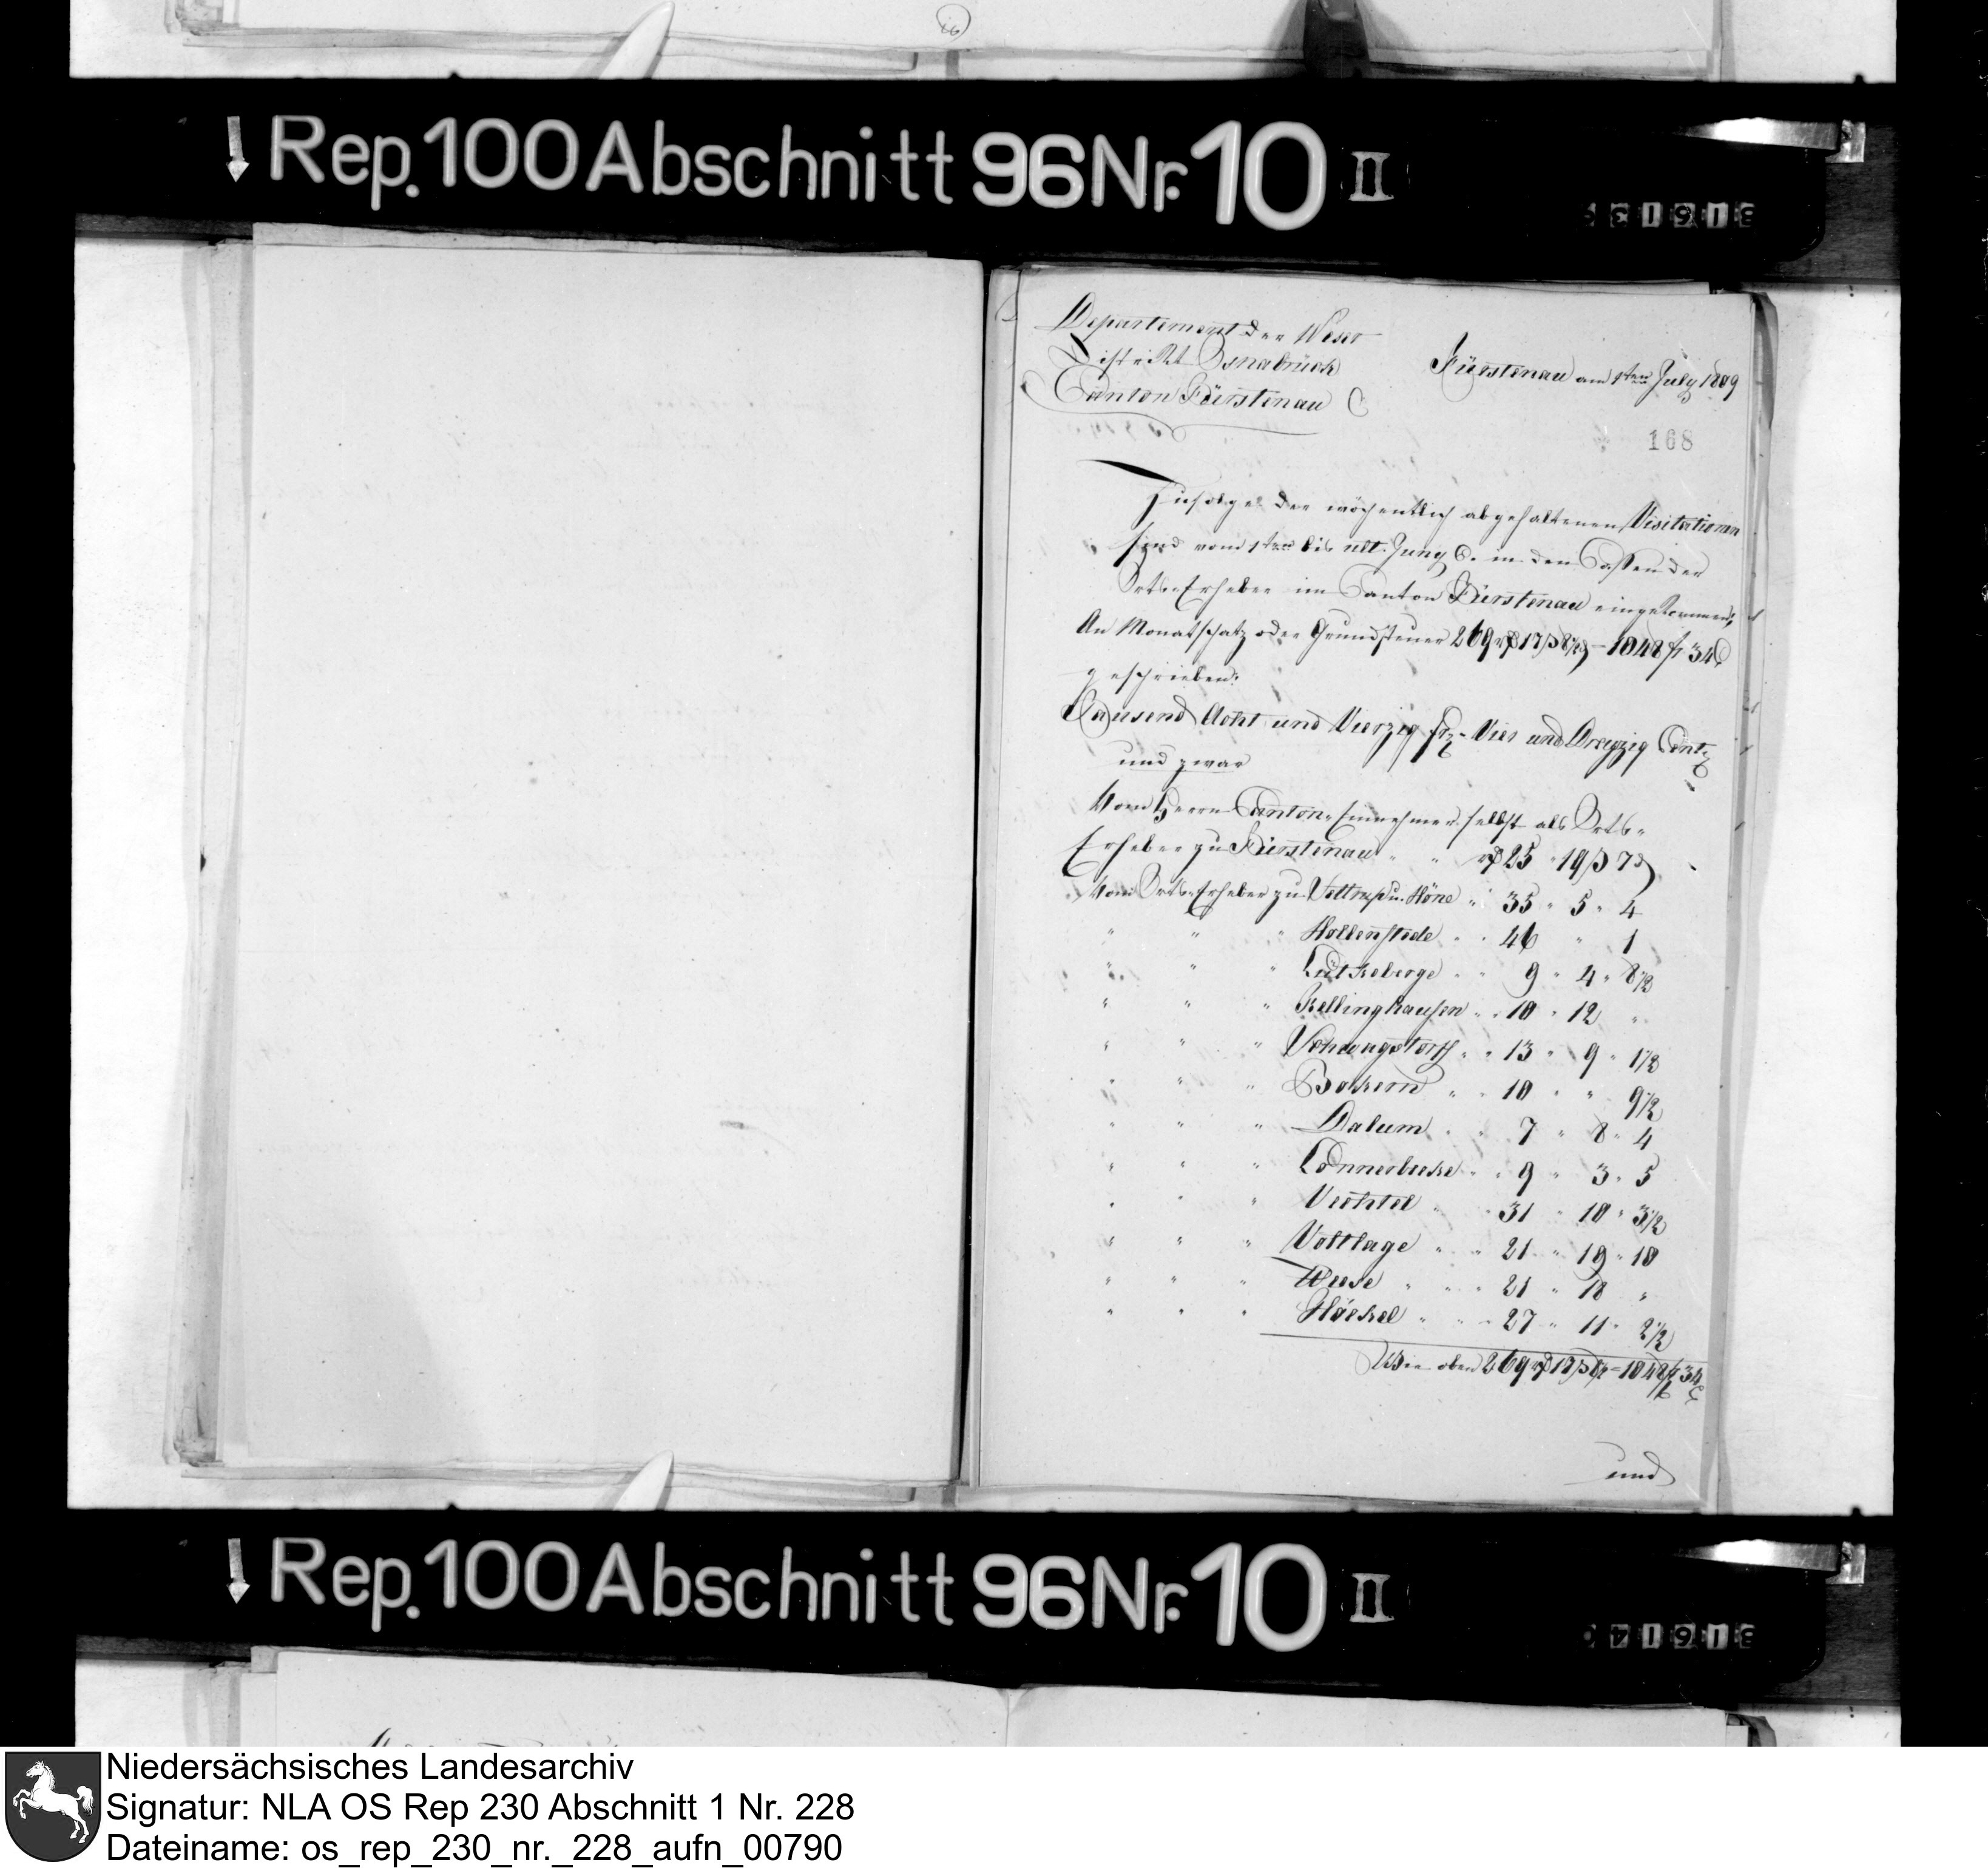 Rep. 100 Abschnitt 96 Nr. 10 II
Departement der Weser
District Osnabrück
Canton Fürstenau
Fürstenau am 1ten July 1809
168
Zufolge der wöchentlich abgehaltenen Visitationen
sind vom 1ten bis ult. Juny c. in den Cassen der
Orts-Erheber im Canton Fürstenau eingekommen,
An Monatschatz oder Grundsteuer 269 rß 17 ß 8½ ₰ – 1048 fr 34 C
geschrieben:
Tausend Acht und Vierzig frz. Vier und Dreyzig Cent.
und zwar
Vom Herrn Canton-Einnehmer selbst als Orts-
Erheber zu Fürstenau " " rß 25 " 19 ß 7 ₰
Vom Orts-Erheber zu Settrup u. Höne " 35 " 5 " 4
" " " Hollenstede " " 46 " 1
" " " Lütkeberge " " 9 " 4 " 8½
" " " Kellinghausen " " 10 " 12 "
" " " Schwagstorff " " 13 " 9 " 1½
" " " Bokern " " 10 " " 9½
" " " Dalum " 7 " 8 " 4
" " " Lonnerbeke " " 9 " 3 " 5
" " " Vechtel " " 31 " 10 " 3½
" " " Voltlage " " 21 " 19 " 10
" " " Weese " " " 21 " 18 "
" " " Höckel " " " 27 " 11 " 2½
Wie oben 269 rß 17 ß 8½ = 1048 fr 34 C
und
Rep. 100 Abschnitt 96 Nr. 10 II
Niedersächsisches Landesarchiv
Signatur: NLA OS Rep 230 Abschnitt 1 Nr. 228
Dateiname: os_rep_230_nr._228_aufn_00790